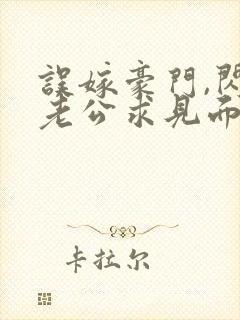 誤嫁豪門,閃
老公求見面
卡拉尔